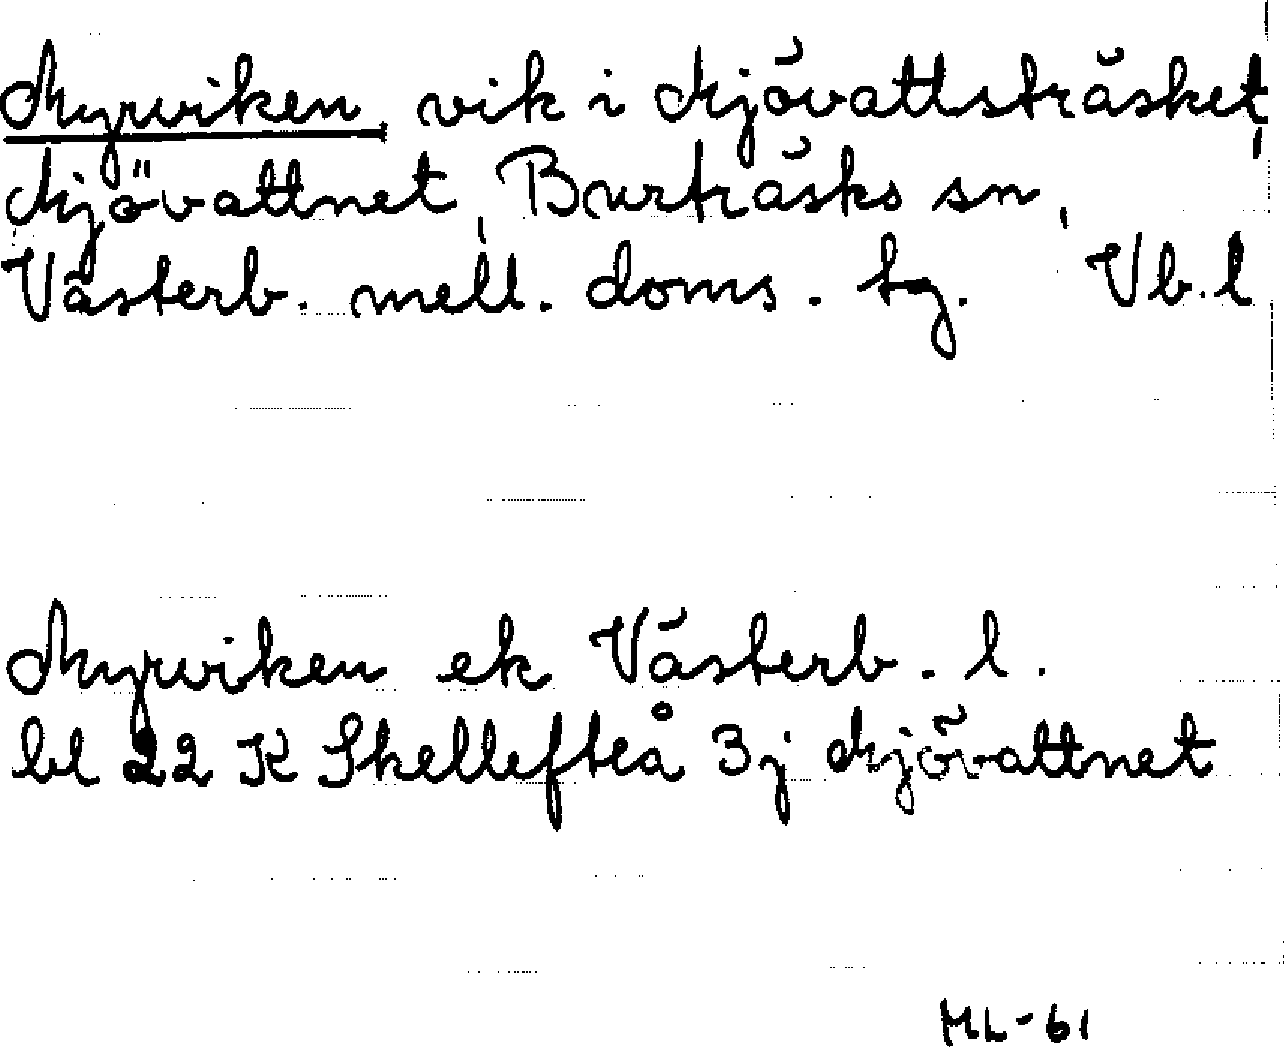 Myrviken, vik i Mjövattsträsket,
Mjövattnet, Burträsks sn,
Västerb. mell. doms. tg. Vb. l
Myrviken ek Västerb. l.
bl 22 K Skellefteå 3j Mjövattnet
ML-61